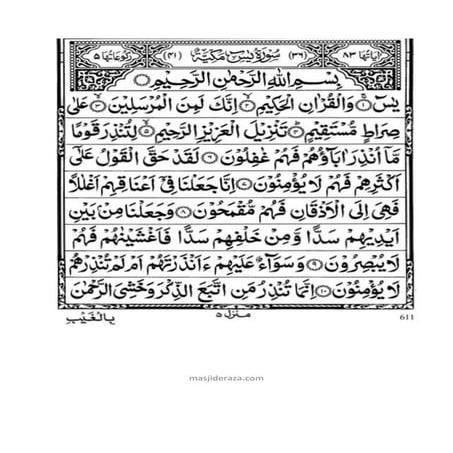 اٰيَاتُهَا ٨٣ (٣٦) سُوْرَةُ يٰسٓ مَكِّيَّةٌ (٤١) رُكُوْعَاتُهَا ٥
بِسْمِ اللّٰهِ الرَّحْمٰنِ الرَّحِيْمِ
يٰسٓ ۝١ وَالْقُرْاٰنِ الْحَكِيْمِ ۝٢ اِنَّكَ لَمِنَ الْمُرْسَلِيْنَ ۝٣ عَلٰى
صِرَاطٍ مُّسْتَقِيْمٍ ۝٤ تَنْزِيْلَ الْعَزِيْزِ الرَّحِيْمِ ۝٥ لِتُنْذِرَ قَوْمًا
مَّاۤ اُنْذِرَ اٰبَآؤُهُمْ فَهُمْ غٰفِلُوْنَ ۝٦ لَقَدْ حَقَّ الْقَوْلُ عَلٰۤى
اَكْثَرِهِمْ فَهُمْ لَا يُؤْمِنُوْنَ ۝٧ اِنَّا جَعَلْنَا فِيْۤ اَعْنَاقِهِمْ اَغْلٰلًا
فَهِىَ اِلَى الْاَذْقَانِ فَهُمْ مُّقْمَحُوْنَ ۝٨ وَجَعَلْنَا مِنْۢ بَيْنِ
اَيْدِيْهِمْ سَدًّا وَّمِنْ خَلْفِهِمْ سَدًّا فَاَغْشَيْنٰهُمْ فَهُمْ
لَا يُبْصِرُوْنَ ۝٩ وَسَوَآءٌ عَلَيْهِمْ ءَاَنْذَرْتَهُمْ اَمْ لَمْ تُنْذِرْهُمْ
لَا يُؤْمِنُوْنَ ۝١٠ اِنَّمَا تُنْذِرُ مَنِ اتَّبَعَ الذِّكْرَ وَخَشِيَ الرَّحْمٰنَ
بِالْغَيْبِ منزل ٥ 611
masjideraza.com